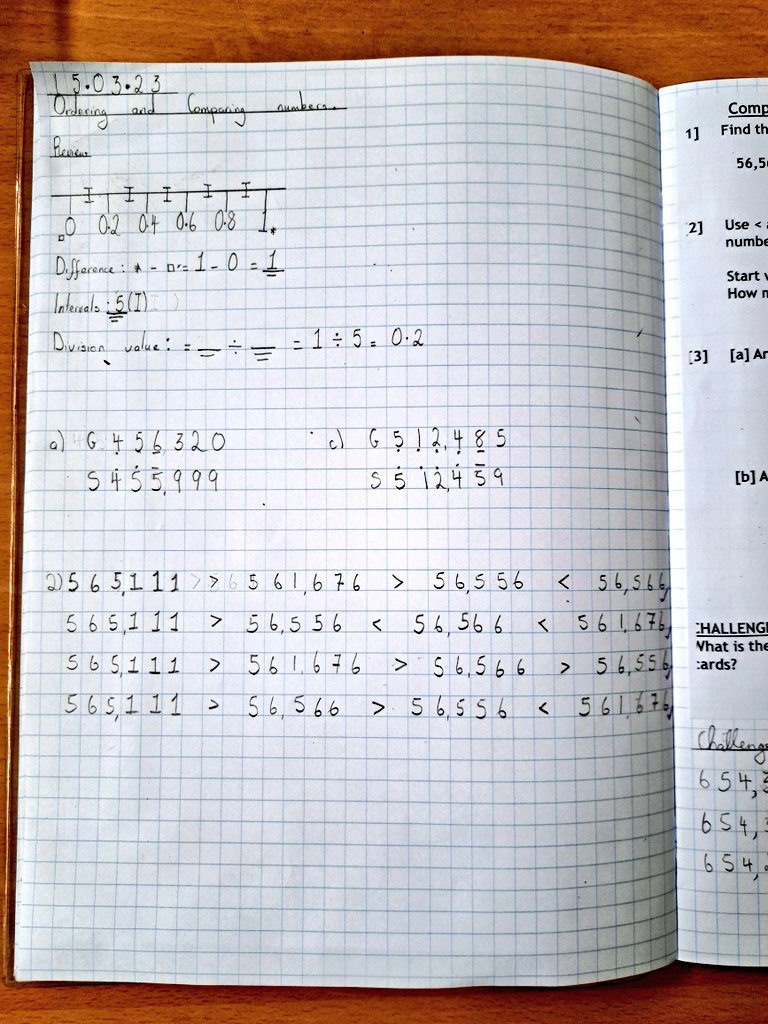 15.03.23
Ordering and Comparing numbers.
Review
0 0.2 0.4 0.6 0.8 1
Difference: * - □ = 1 - 0 = 1
Intervals: 5 (I)
Division value: = __ ÷ __ = 1 ÷ 5 = 0.2
a) G 456,320 c) G 512,485
S 455,999 S 512,459
2) 565,111 > 561,676 > 56,556 < 56,566,
565,111 > 56,556 < 56,566 < 561,676,
565,111 > 561,676 > 56,566 > 56,556,
565,111 > 56,566 > 56,556 < 561,676,
Comp
1] Find th
56,5
2] Use <
numbe
Start
How
[3] [a] Ar
[b] A
CHALLENG
What is the
cards?
Challenge
654,
654,
654,